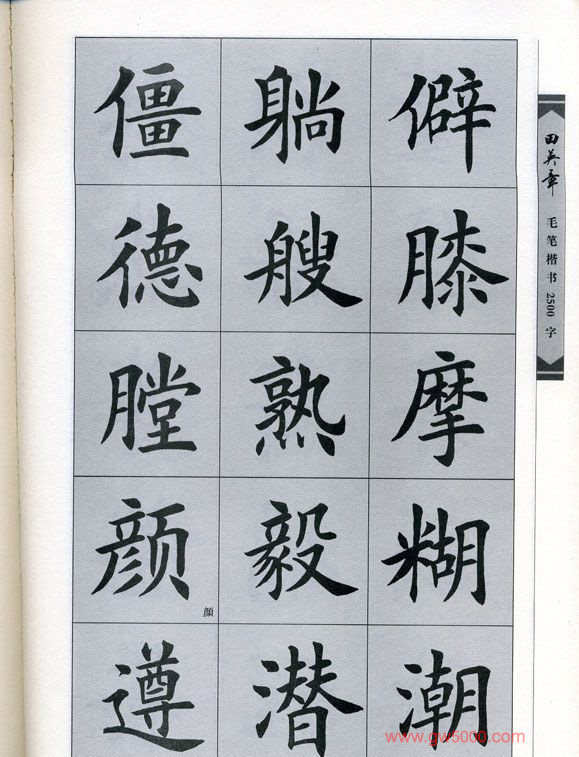 僵躺僻
德艘膝
膛熟摩
颜毅糊
顏
遵潜潮
田英章
毛笔楷书2500字
www.gw5000.com